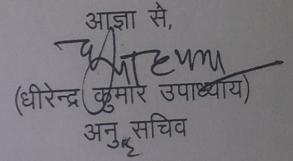 आज्ञा से,
(धीरेन्द्र कुमार उपाध्याय)
अनु सचिव